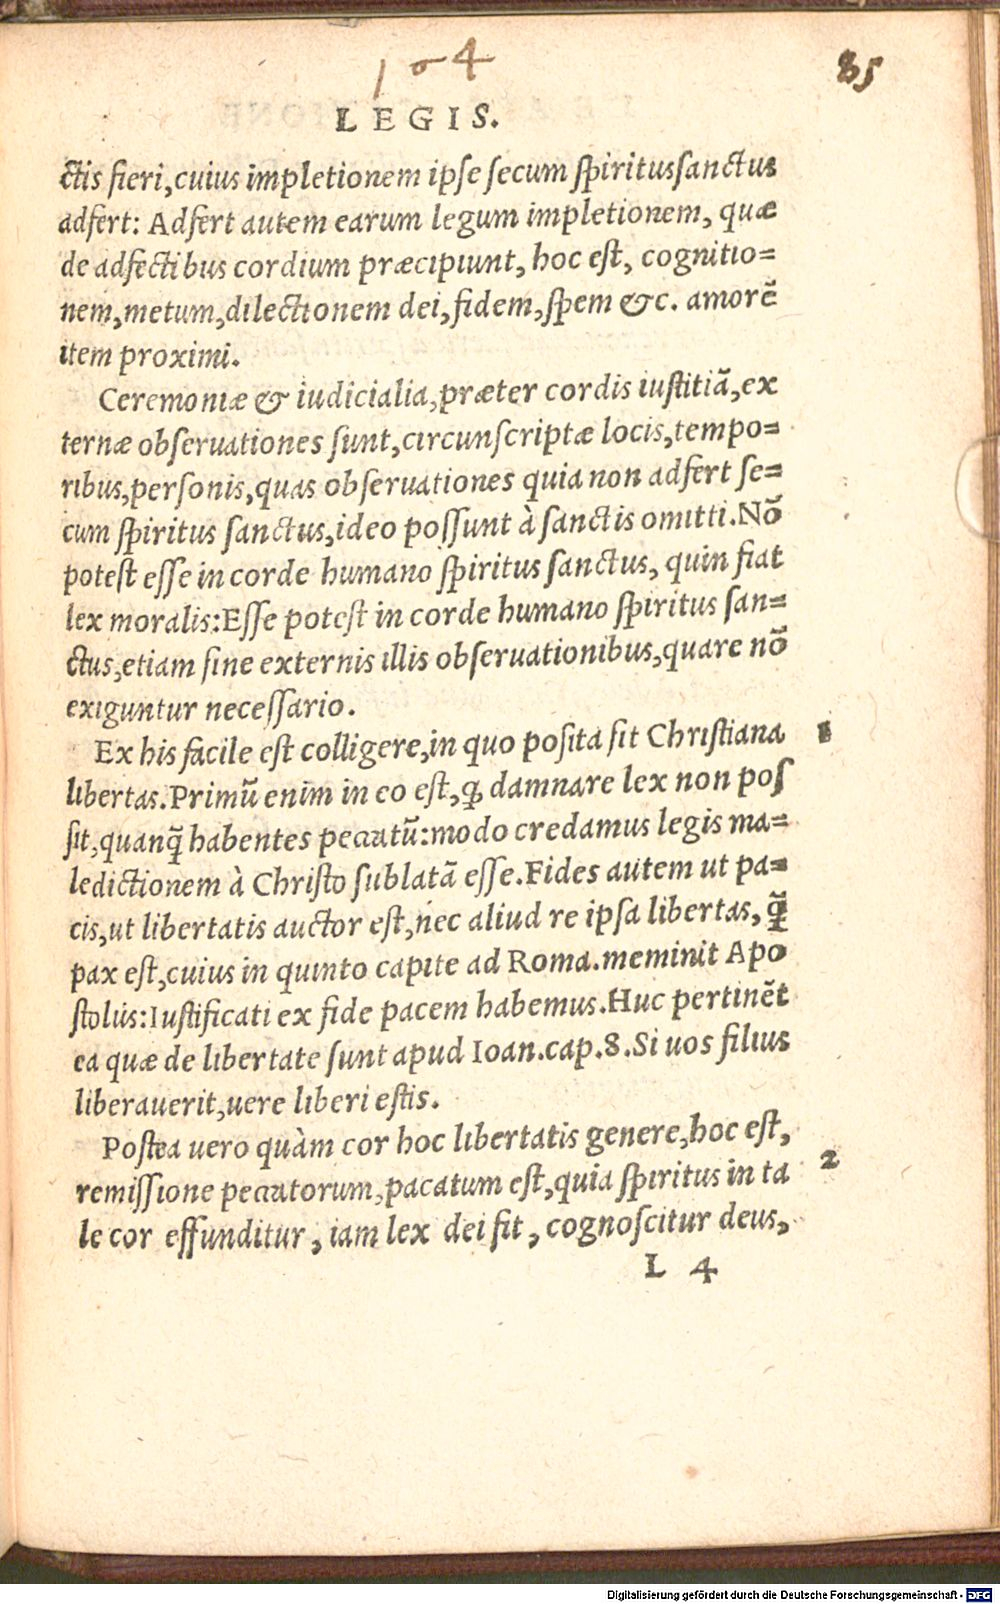 104
85
LEGIS.
ctis fieri,cuius impletionem ipse secum spiritussanctus
adfert: Adfert autem earum legum impletionem, quæ
de adfectibus cordium præcipiunt, hoc est, cognitio=
nem,metum,dilectionem dei,fidem,spem &c. amorē
item proximi.
Ceremoniæ & iudicialia,præter cordis iustitiā,ex
ternæ obseruationes sunt,circunscriptæ locis,tempo=
ribus,personis,quas obseruationes quia non adfert se=
cum spiritus sanctus,ideo possunt à sanctis omitti.Nō
potest esse in corde humano spiritus sanctus, quin fiat
lex moralis:Esse potest in corde humano spiritus san=
ctus,etiam sine externis illis obseruationibus,quare nō
exiguntur necessario.
Ex his facile est colligere,in quo posita sit Christiana 1
libertas.Primū enim in eo est,ꝙ damnare lex non pos
sit,quanq̃ habentes peccatū:modo credamus legis ma=
ledictionem à Christo sublatā esse.Fides autem ut pa=
cis,ut libertatis auctor est,nec aliud re ipsa libertas,q̃
pax est,cuius in quinto capite ad Roma.meminit Apo
stolus:Iustificati ex fide pacem habemus.Huc pertinēt
ea quæ de libertate sunt apud Ioan.cap.8.Si uos filius
liberauerit,uere liberi estis.
Postea uero quàm cor hoc libertatis genere,hoc est,
remissione peccatorum,pacatum est,quia spiritus in ta 2
le cor effunditur, iam lex dei fit, cognoscitur deus,
L 4
Digitalisierung gefördert durch die Deutsche Forschungsgemeinschaft - DFG